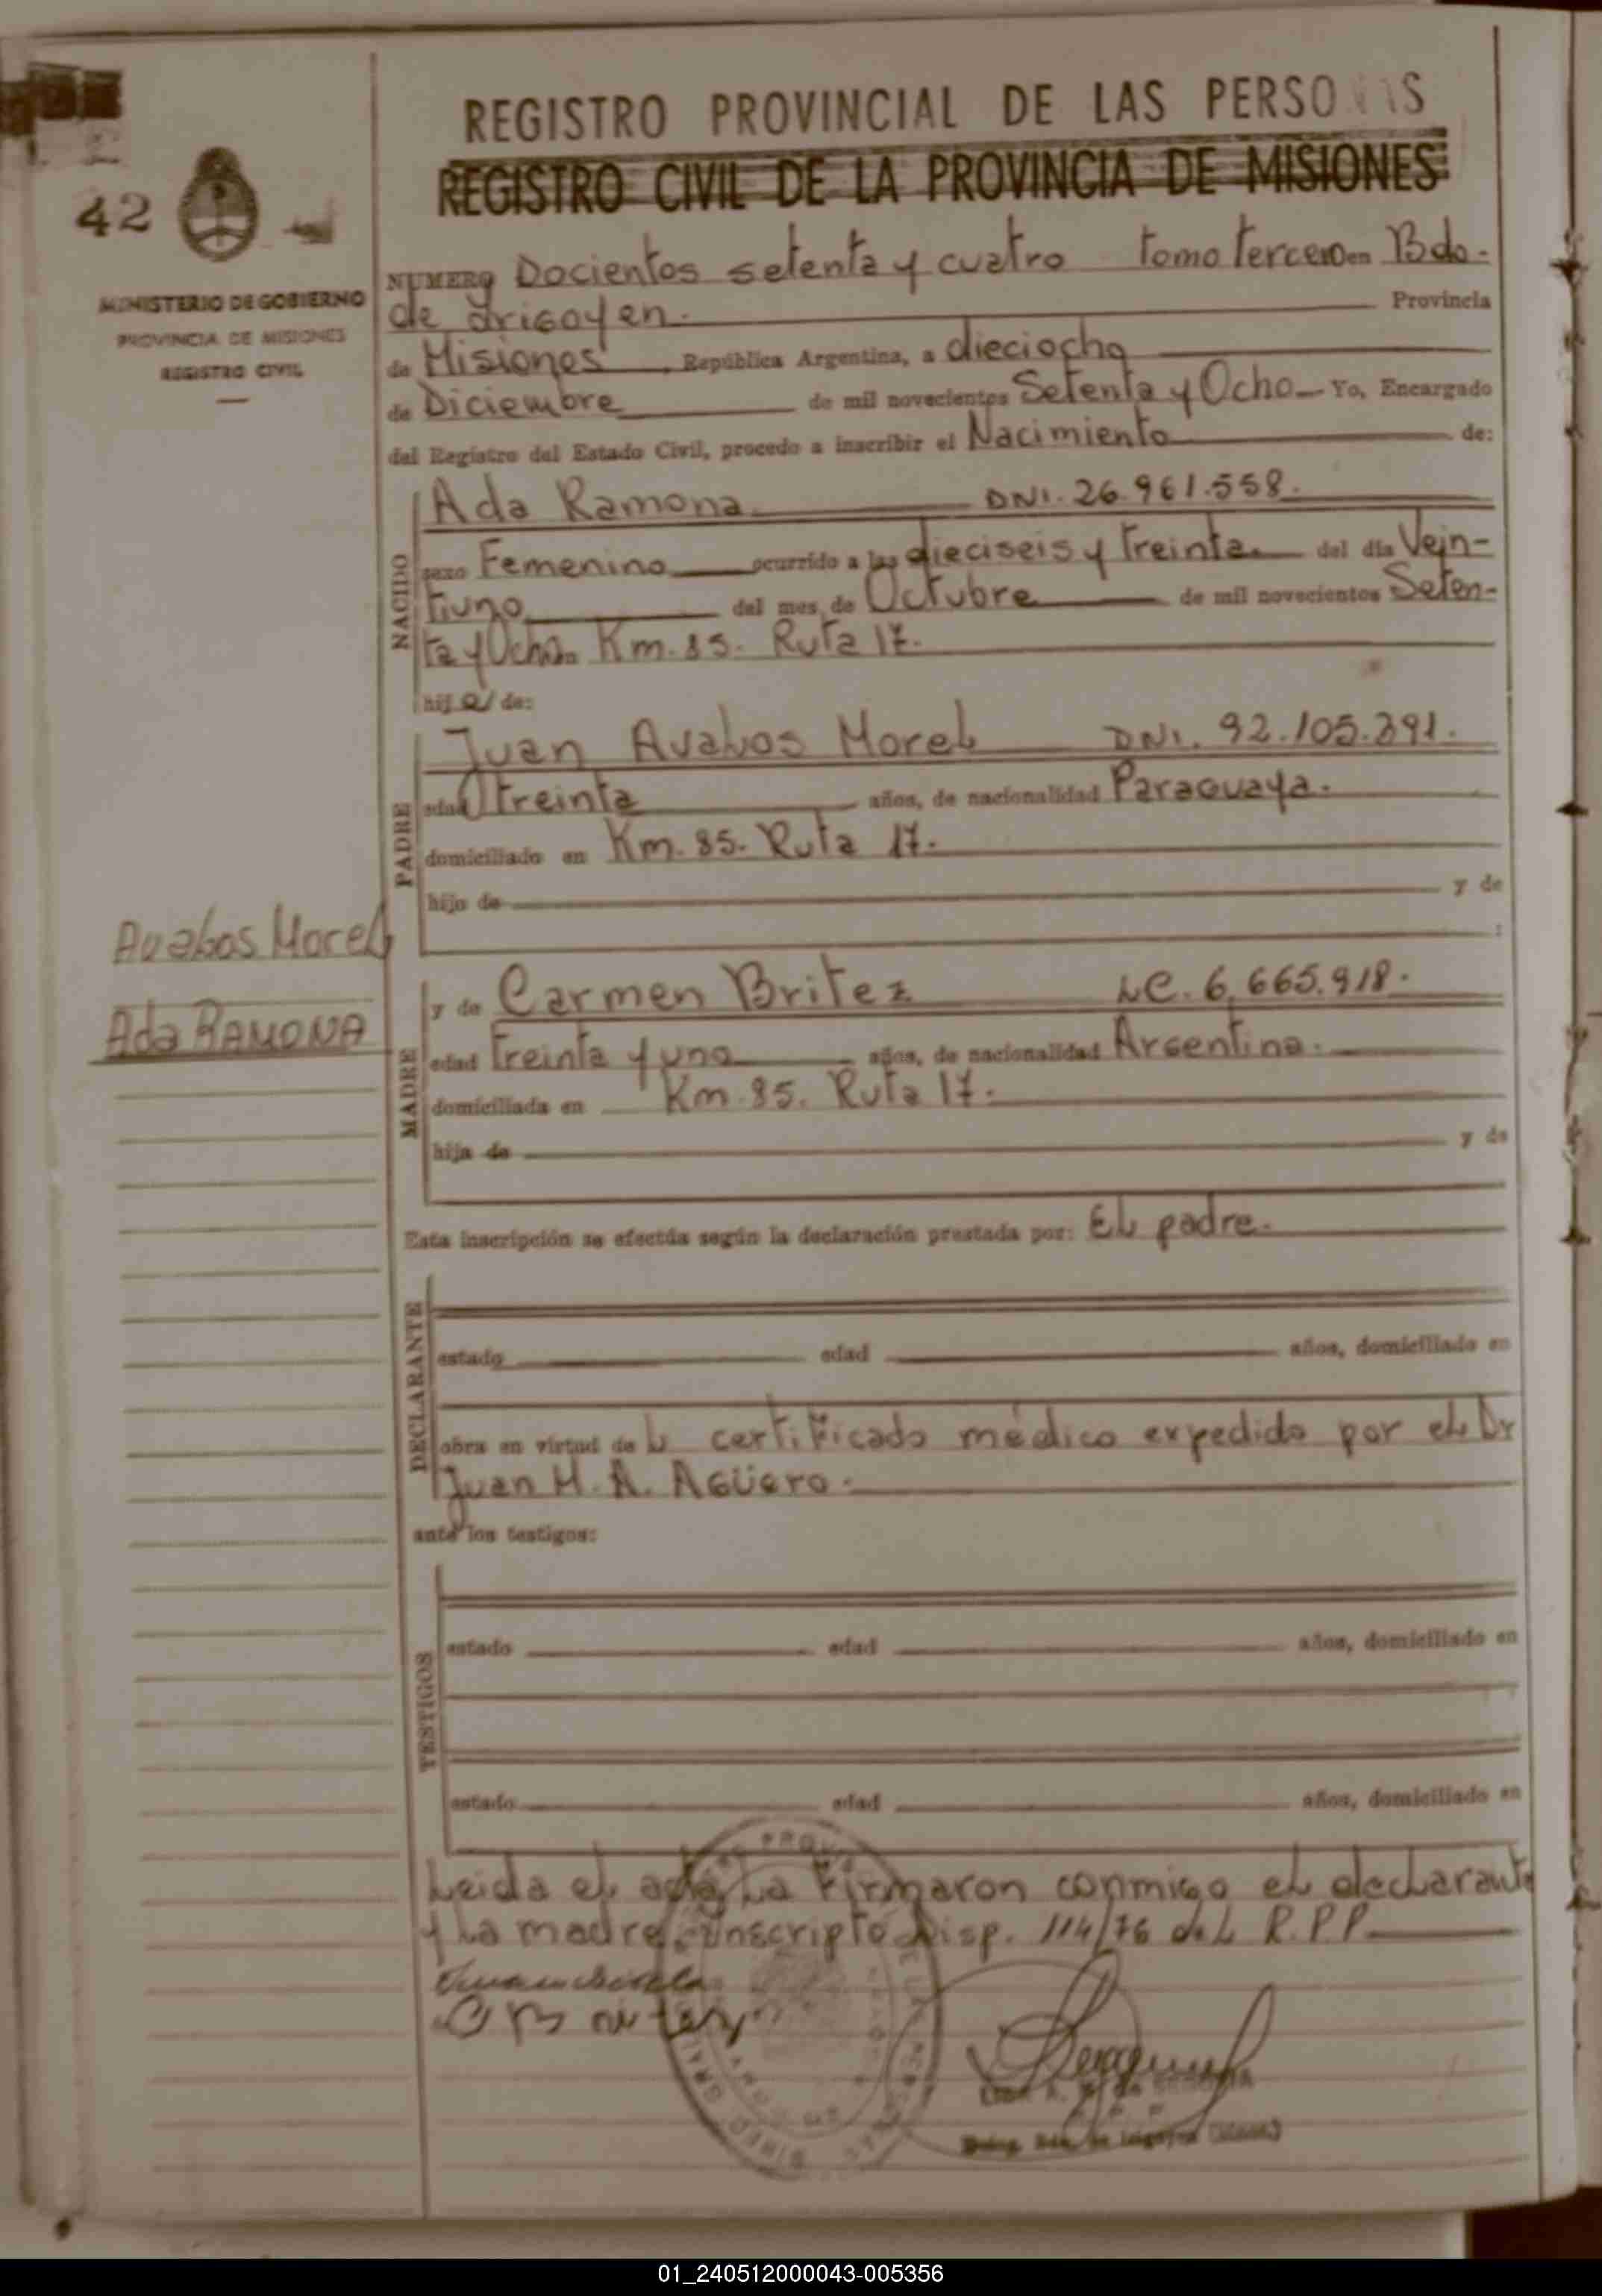 REGISTRO PROVINCIAL DE LAS PERSONAS
REGISTRO CIVIL DE LA PROVINCIA DE MISIONES
42
MINISTERIO DE GOBIERNO
PROVINCIA DE MISIONES
REGISTRO CIVIL
NUMERO Docientos setenta y cuatro tomo tercero en Bdo.
de Irigoyen. Provincia
de Misiones, República Argentina, a dieciocho
de Diciembre de mil novecientos Setenta y Ocho Yo, Encargado
del Registro del Estado Civil, procedo a inscribir el Nacimiento de:
NACIDO
Ada Ramona DNI. 26.961.558.
sexo Femenino ocurrido a las dieciseis y treinta. del día Vein-
tiuno del mes de Octubre de mil novecientos Seten-
ta y Ocho Km. 85. Ruta 17.
hija de:
PADRE
Juan Avalos Morel DNI. 92.105.391.
edad treinta años, de nacionalidad Paraguaya.
domiciliado en Km. 85. Ruta 17.
hijo de y de
:
Avalos Morel
Ada RAMONA
MADRE
y de Carmen Britez LC. 6.665.918.
edad treinta y uno años, de nacionalidad Argentina.
domiciliada en Km. 85. Ruta 17.
hija de y de
Esta inscripción se efectúa según la declaración prestada por: El padre.
DECLARANTE
estado edad años, domiciliado en
obra en virtud del certificado médico expedido por el Dr
Juan H. A. Agüero.
ante los testigos:
TESTIGOS
estado edad años, domiciliado en
estado edad años, domiciliado en
Leida el acta la firmaron conmigo el declarante
y la madre. Inscripto Disp. 114/76 del R.P.P.
C Britez
01_240512000043-005356